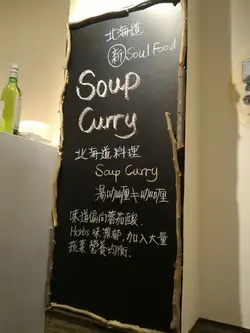 北海道
新 Soul Food
Soup
Curry
北海道料理
Soup Curry
湯咖喱≠咖喱
味道偏向蕃茄酸.
Herbs 味濃郁, 加入大量
蔬菜 營養均衡.